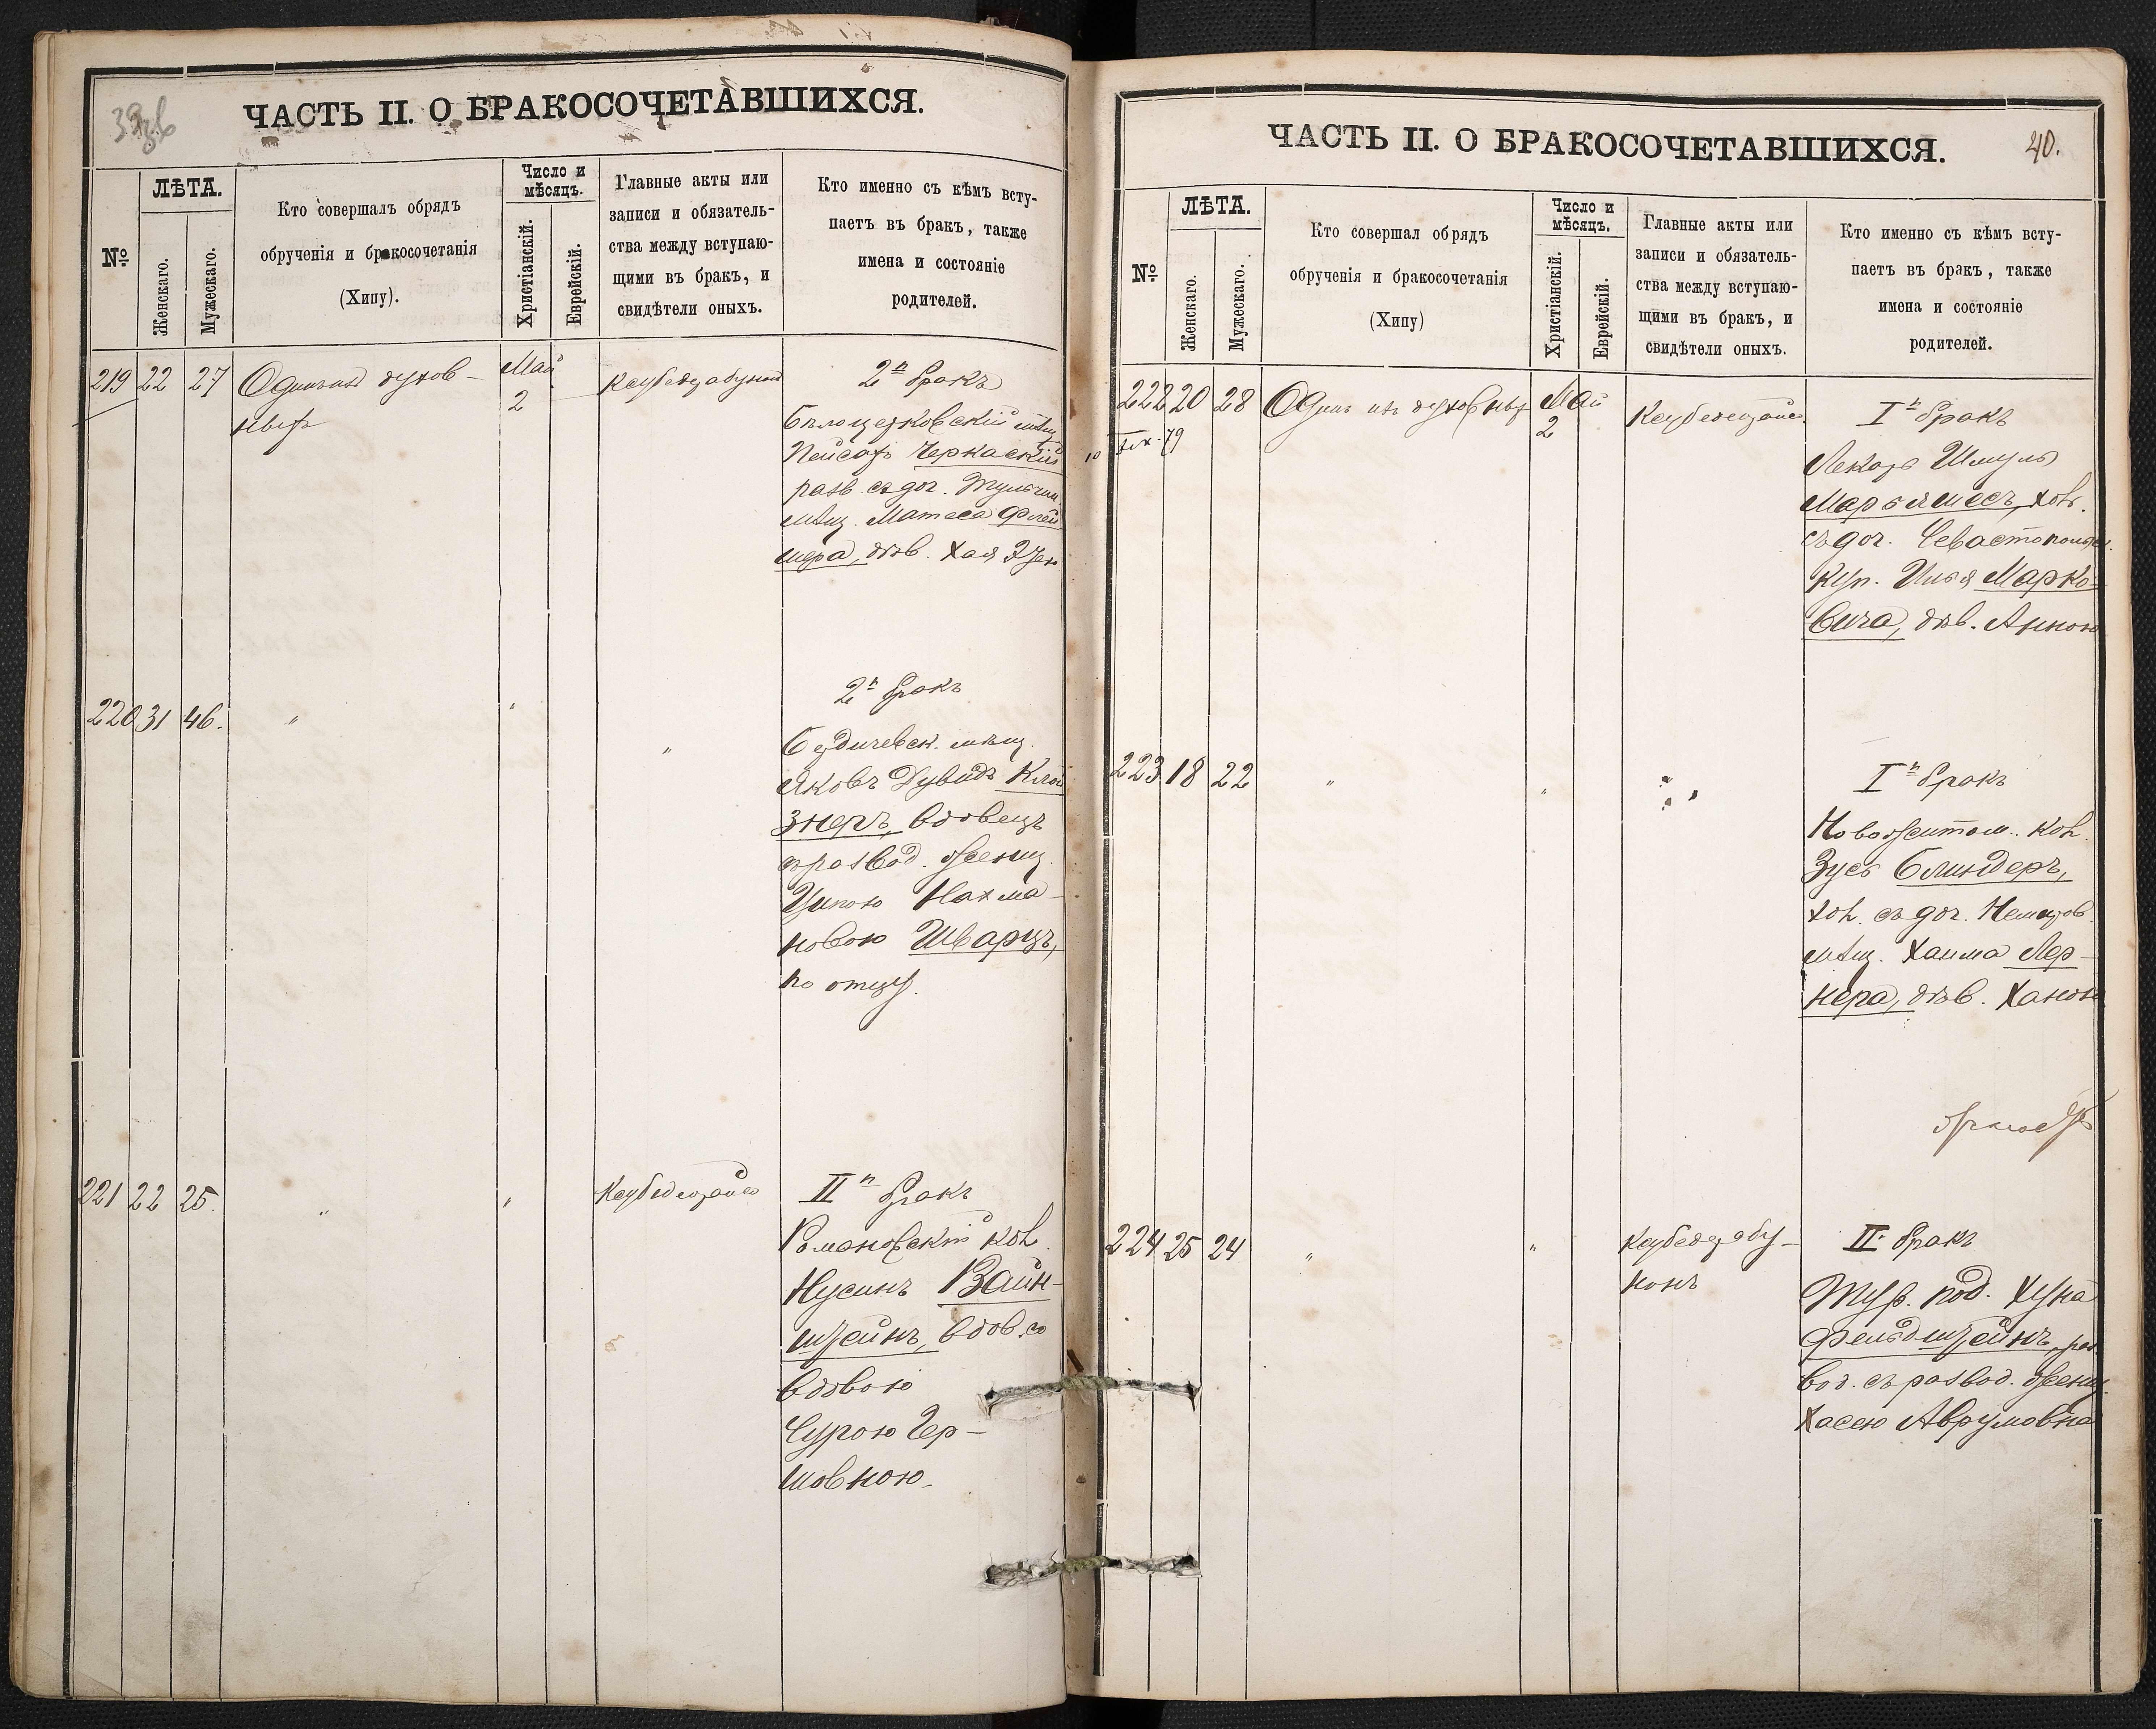 ЧАСТЬ II. О БРАКОСОЧЕТАВШИХСЯ.
№
ЛѢТА.
Женскаго.
Мужескаго.
Кто совершалъ обрядъ
обрученія и бракосочетанія
(Хипу).
Число и
мѣсяцъ.
Христіанскій.
Еврейскій.
Главные акты или
записи и обязатель-
ства между вступаю-
щими въ бракъ, и
свидѣтели оныхъ.
Кто именно съ кѣмъ всту-
паетъ въ бракъ, также
имена и состояніе
родителей.
219 22 27
духов-
ныхъ
Май
2
2й бракъ
Бѣлоцерковскій мѣщ.
Пейсахъ Черкаскій
разв. съ доч. Тульчин.
мѣщ. Матеса Флей
шера, дѣв. Хая
220 31 46. " " "
2й бракъ
Бердичевск. мѣщ.
Яковъ Дувидъ Клой
знеръ, вдовецъ
съ развод. женщ.
Ципою Нахма-
новою Шварцъ,
по отцу.
221 22 25. " "
II й бракъ
Романовскій кол.
Нусинъ Вайн-
штейнъ, вдов. со
вдовою
Сурою Гер-
шовною.
ЧАСТЬ II. О БРАКОСОЧЕТАВШИХСЯ.
40.
№
ЛѢТА.
Женскаго.
Мужескаго.
Кто совершал обрядъ
обрученія и бракосочетанія
(Хипу)
Число и
мѣсяцъ.
Христіанскій.
Еврейскій.
Главные акты или
записи и обязатель-
ства между вступаю-
щими въ бракъ, и
свидѣтели оныхъ.
Кто именно съ кѣмъ всту-
паетъ въ бракъ, также
имена и состояніе
родителей.
222 20 28
Одинъ изъ духовныхъ
Май
2
I й бракъ
Лекарь Шмуль
Марьямесъ, хол.
съ доч. Севастопольск.
куп. Илья Марко-
вича, дѣв. Анною
223 18 22 " " "
I й бракъ
Новожитом. кол.
Зусь Блиндеръ,
хол. съ доч.
мѣщ. Хаима Лер-
нера, дѣв. Ханою
224 25 24 " "
II й бракъ
под. Хуна
Фельдштейнъ, раз
вод. съ развод. женщ.
Хасею Аврумовна